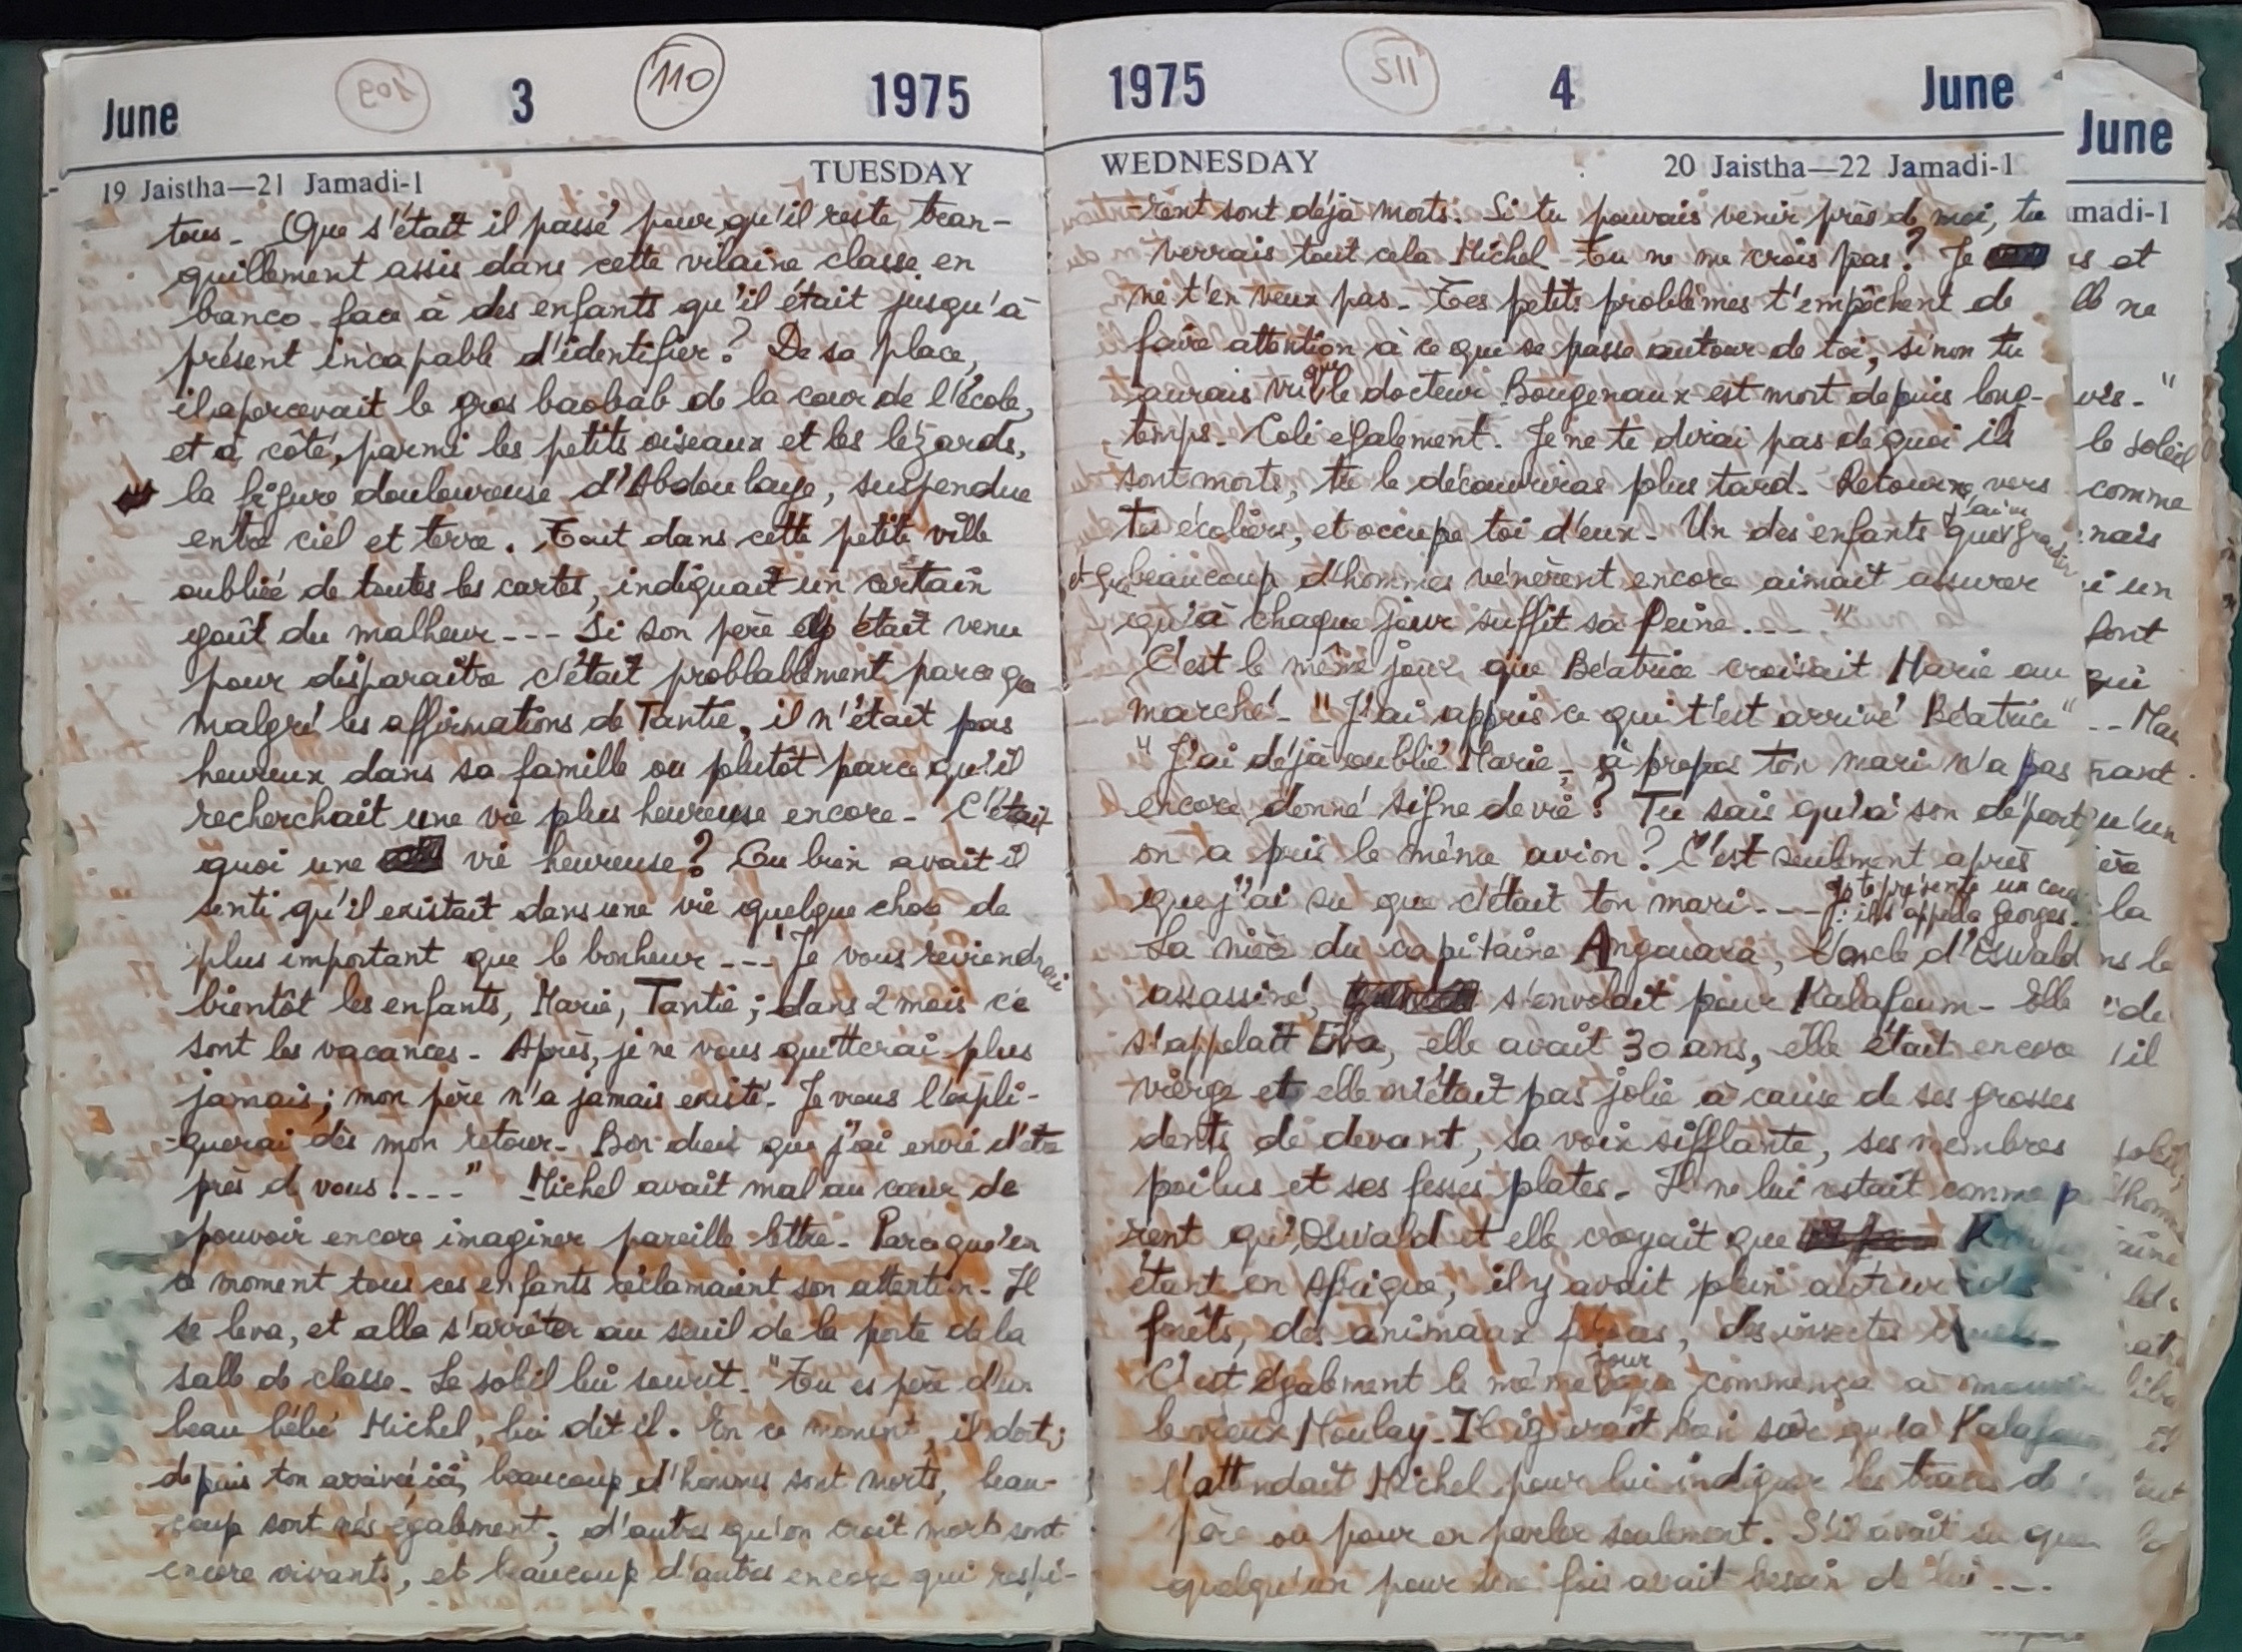 June 3 110 1975
19 Jaistha—21 Jamadi-1 TUESDAY
tous. Que s'était il passé pour qu'il reste tran-
quillement assis dans cette vilaine classe en
banco face à des enfants qu'il était jusqu'à
présent incapable d'identifier? De sa place,
il apercevait le gros baobab de la cour de l'école,
et à côté, parmi les petits oiseaux et les lézards,
la figure douloureuse d'Abdoulaye, suspendue
entre ciel et terre. Tout dans cette petite ville
oubliée de toutes les cartes, indiquait un certain
goût du malheur --- Si son père était venu
pour disparaître c'était probablement parce que
malgré les affirmations de Tantie, il n'était pas
heureux dans sa famille ou plutôt parce qu'il
recherchait une vie plus heureuse encore - C'était
quoi une vie heureuse? Ou bien avait il
senti qu'il existait dans une vie quelque chose de
plus important que le bonheur --- "Je vous reviendrai
bientôt les enfants, Marie, Tantie; dans 2 mois ce
sont les vacances - Après, je ne vous quitterai plus
jamais; mon père n'a jamais existé - Je vous l'expli-
-querai dès mon retour - Bon dieu que j'ai envie d'être
près d vous! ----" Michel avait mal au cœur de
pouvoir encore imaginer pareille lettre - Parce qu'en
ce moment tous ces enfants réclamaient son attention - Il
se leva, et alla s'arrêter au seuil de la porte de la
salle de classe - Le soleil lui sourit - "Tu es père d'un
beau bébé Michel, lui dit il. En ce moment, il dort;
depuis ton arrivée ici, beaucoup d'hommes sont morts, beau-
coup sont nés également; d'autres qu'on croit morts sont
encore vivants, et beaucoup d'autres encore qui respi-
1975 4 June
WEDNESDAY 20 Jaistha—22 Jamadi-1
-rent sont déjà morts. Si tu pouvais venir près de moi, tu
verrais tout cela Michel - Tu ne me crois pas? Je
ne t'en veux pas - Tes petits problèmes t'empêchent de
faire attention à ce qui se passe autour de toi, sinon tu
aurais vu que le docteur Bougenaux est mort depuis long-
temps - Coli également. Je ne te dirai pas de quoi ils
sont morts, tu le découvriras plus tard - Retourne vers
tes écoliers, et occupe toi d'eux - Un des enfants que j'ai vu grandir
et que beaucoup d'hommes vénèrent encore aimait assurer
qu'à chaque jour suffit sa peine ---- "
C'est le même jour que Béatrice croisait Marie au
marché - "J'ai appris ce qui t'est arrivé Béatrice"
"J'ai déjà oublié Marie - à propos ton mari n'a pas
encore donné signe de vie? Tu sais qu'à son départ
on a pris le même avion? C'est seulement après
que j'ai su que c'était ton mari ---- Je te présente un
il s'appelle Georges.
La nièce du capitaine Angouara, l'oncle d'Oswald
assassiné, s'envolait pour Kalafoum - Elle
s'appelait Eva, elle avait 30 ans, elle était encore
vierge et elle n'était pas jolie à cause de ses grosses
dents de devant, sa voix sifflante, ses membres
poilus et ses fesses plates - Il ne lui restait comme pa
rent qu'Oswald et elle croyait que
étant en Afrique, il y avait plein autour des
forêts, des animaux féroces, des insectes
C'est également le même jour que commença à mourir
le vieux Moulay - Il ignorait bien sûr qu'à Kalafoum
l'attendait Michel pour lui indiquer les traces de
père ou pour en parler seulement. S'il avait su que
quelqu'un pour une fois avait besoin de lui ----
June
madi-1
s et
ne
vis - "
le soleil
comme
nais
i un
font
qui
nant
qu'un
ère
la
ns le
"de
il
soleil,